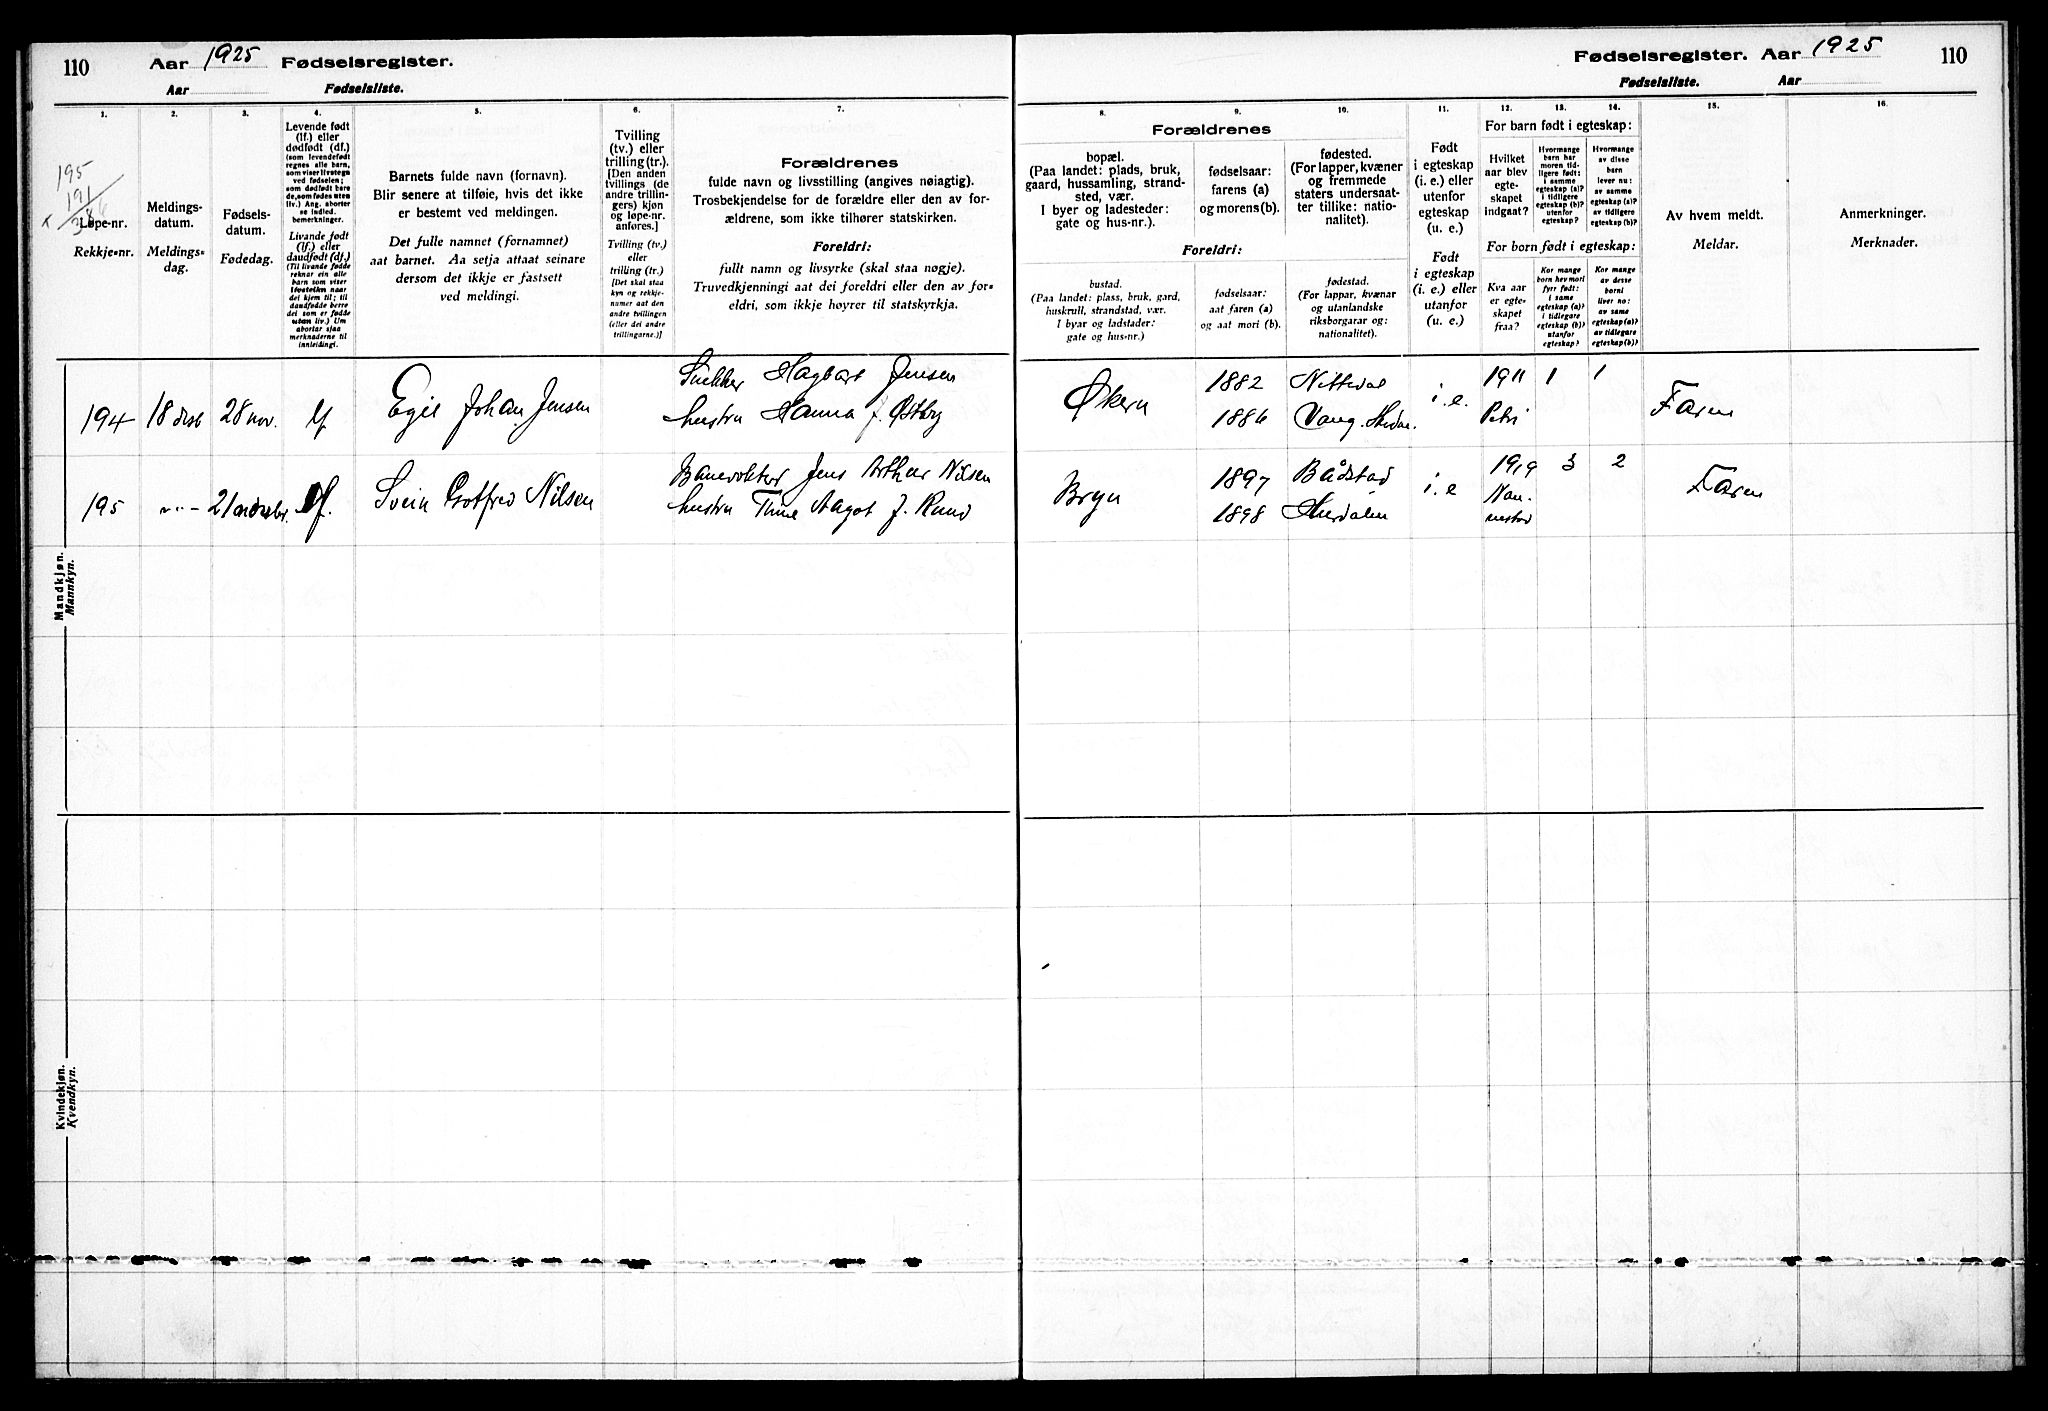 110 Aar 1925 Fødselsregister.
Aar Fødselsliste.
Fødselsregister. Aar 1925 110
Fødselsliste. Aar
1.
2.
3.
4.
5.
6.
7.
8.
9.
10.
11.
12.
13.
14.
15.
16.
195
191
386
Løpe-nr.
Rekkje-nr.
Meldings-
datum.
Meldings-
dag.
Fødsels-
datum.
Fødedag.
Levende født
(lf.) eller
dødfødt (df.)
(som levendefødt
regnes alle barn,
som viser livstegn
ved fødselen;
som dødfødt bare
de, som fødes uten
liv.) Ang. aborter
se indled.
bemerkninger.
Livande født
(lf.) eller
daudfødt (df.)
(Til livande fødde
reknar ein alle
barn som viser
livsteikn naar
dei kjem til; til
daudfødde berre
dei som er fødde
utan liv.) Um
abortar sjaa
merknaderne til
innleiðingi.
Barnets fulde navn (fornavn).
Blir senere at tilføie, hvis det ikke
er bestemt ved meldingen.
Det fulle namnet (fornamnet)
aat barnet. Aa setja attaat seinare
dersom det ikkje er fastsett
ved meldingi.
Tvilling
(tv.) eller
trilling (tr.).
[Den anden
tvillings (de
andre trillin-
gers) kjøn
og løpe-nr.
anføres.]
Tvilling (tv.)
eller
trilling (tr.)
[Det skal staa
kyn og rekkje-
numer aat den
andre tvillingen
(eller dei andre
trillingarne.)]
Forældrenes
fulde navn og livsstilling (angives nøiagtig).
Trosbekjendelse for de forældre eller den av for-
ældrene, som ikke tilhører statskirken.
Foreldri:
fullt namn og livsyrke (skal staa nøgje).
Truvedkjenningi aat dei foreldri eller den av for-
eldri, som ikkje høyrer til statskyrkja.
Forældrenes
bopæl.
(Paa landet: plads, bruk,
gaard, hussamling, strand-
sted, vær.
I byer og ladesteder:
gate og hus-nr.).
fødselsaar:
farens (a)
og morens (b).
fødested.
(For lapper, kvæner
og fremmede
staters undersaat-
ter tillike: natio-
nalitet).
Foreldri:
bustad.
(Paa landet: plass, bruk, gard,
huskrull, strandstad, vær.
I byar og ladstader:
gate og hus-nr.)
fødselsaar:
aat faren (a)
og aat mori (b).
fødestad.
(For lappar, kvænar
og utanlandske
riksborgarar og:
nationalitet).
Født
i egteskap
(i. e.) eller
utenfor
egteskap
(u. e.)
Født
i egteskap
(i. e.) eller
utanfor
(u. e.)
For barn født i egteskap:
Hvilket
aar blev
egte-
skapet
indgaat?
Hvormange
barn har
moren tid-
ligere født:
i samme
egteskap (a)?
i tidligere
egteskap (b)?
utenfor
egteskap?
Hvormange
av disse
barn
lever nu:
av samme
egteskap (a)?
av tidligere
egteskap (b)?
For born født i egteskap:
Kva aar
er egte-
skapet
fraa?
Kor mange
born hev mori
fyrr født:
i same
egteskap (a)?
i tidlegare
egteskap (b)?
utanfor
egteskap?
Kor mange
av desse
borni
liver no:
av same
egteskap (a)?
av tidlegare
egteskap (b)?
Av hvem meldt.
Meldar.
Anmerkninger.
Merknader.
Mandkjøn.
Mannkyn.
194 18 des 28 nov. lf Egil Johan Jensen
Snekker Hagbart Jensen
hustru Hanna f. Østby
Økern 1882 1886 Nittedal Vang. Hedm. i. e. 1911 Petri 1 1 Faren
195 -"- 21 novbr. lf. Svein Gotfred Nilsen
Banevokter Jens Arthur Nilsen
hustru Aagot f. Rund
Bryn 1897 1898 Båstad i. e 1919 Nannestad 3 2 Faren
Kvindekjøn.
Kvendkyn.